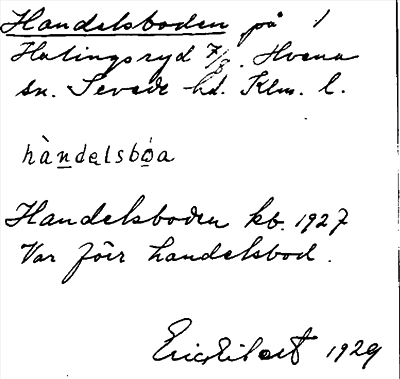 Handelsboden på
Hatingsryd 7/8. Hvena
sn. Sevede hd. Klm. l.
hàndelsbòa
Handelsboden kb. 1927
Var förr handelsbod.
1929